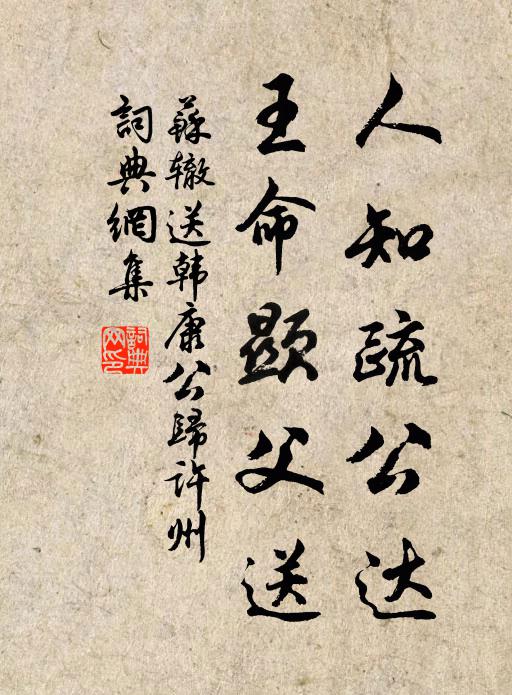 人知疏公达
王命顕父送
蘇辙送韩康公歸许州
詞典網集
詞典網印